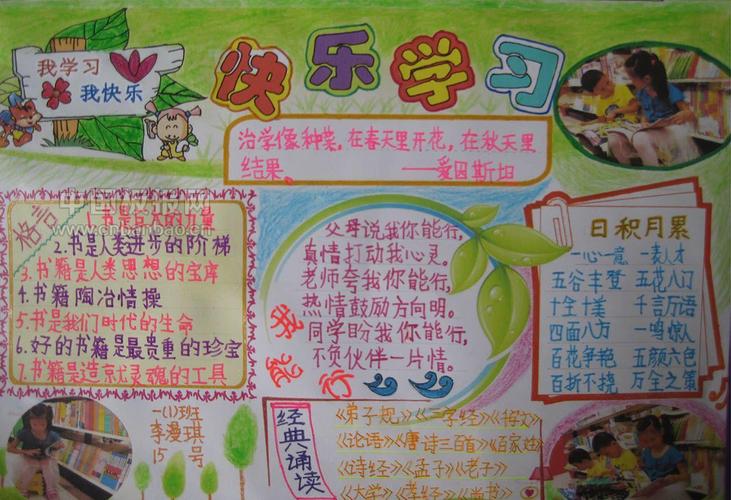 我学习
我快乐
快乐学习
治学像种菜,在春天里开花,在秋天里
结果。 ——爱因斯坦
格言
1.书是巨大的力量
2.书是人类进步的阶梯
3.书籍是人类思想的宝库
4.书籍陶冶情操
5.书是我们时代的生命
6.好的书籍是最贵重的珍宝
7.书籍是造就灵魂的工具
父母说我你能行,
真情打动我心灵。
老师夸我你能行,
热情鼓励方向明。
同学盼我你能行,
不负伙伴一片情。
我能行
日积月累
一心一意 一表人才
五谷丰登 五花八门
十全十美 千言万语
四面八方 一鸣惊人
百花争艳 五颜六色
百折不挠 万全之策
一(1)班
李漫琪
15号
经典诵读
《弟子规》《三字经》《梅文》
《论语》《唐诗三百首》《百家姓》
《诗经》《孟子》《老子》
《大学》《孝经》《尚书》
www.cnbanbao.cn